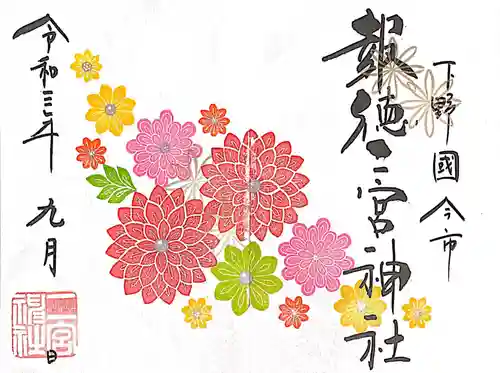 下野國今市
報徳二宮神社
令和三年
九月
日
二宮神社